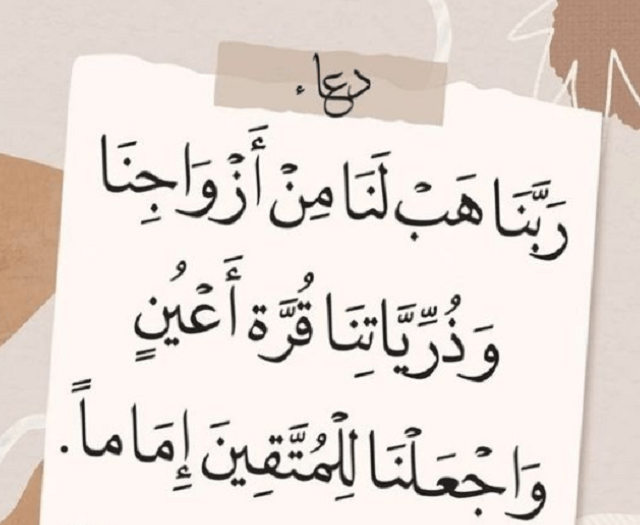 دعاء
رَبَّنَا هَبْ لَنَا مِنْ أَزْوَاجِنَا
وَذُرِّيَّاتِنَا قُرَّةَ أَعْيُنٍ
وَاجْعَلْنَا لِلْمُتَّقِينَ إِمَاماً.